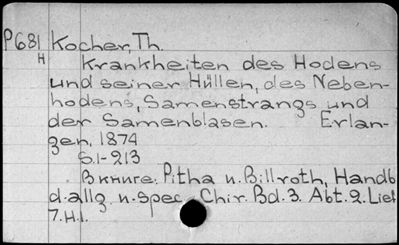 P681 Kocher, Th.
H Krankheiten des Hodens
und seiner Hüllen, des Neben-
hodens, Samenstrangs und
der Samenblasen. Erlan-
gen, 1874
S.1-213
В книге: Pitha u. Billroth, Handb
d. allg. u. spec. Chir. Bd. 3. Abt. 2. Lief
7. H. 1.